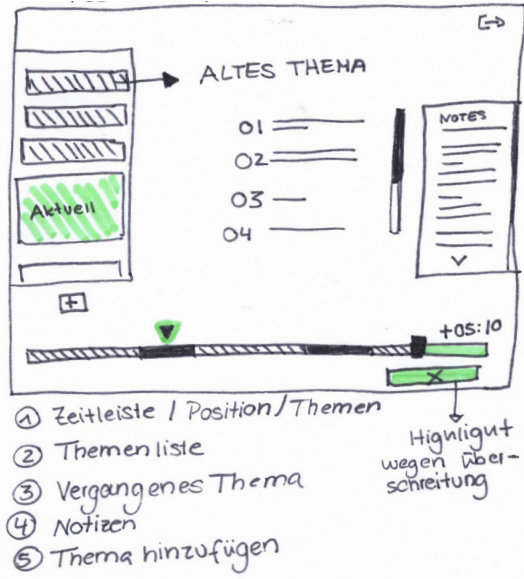 ALTES THEMA
01
02
03
04
NOTES
Aktuell
+
+05:10
X
① Zeitleiste / Position / Themen
② Themenliste
③ Vergangenes Thema
④ Notizen
⑤ Thema hinzufügen
Highligut
wegen über-
schreitung